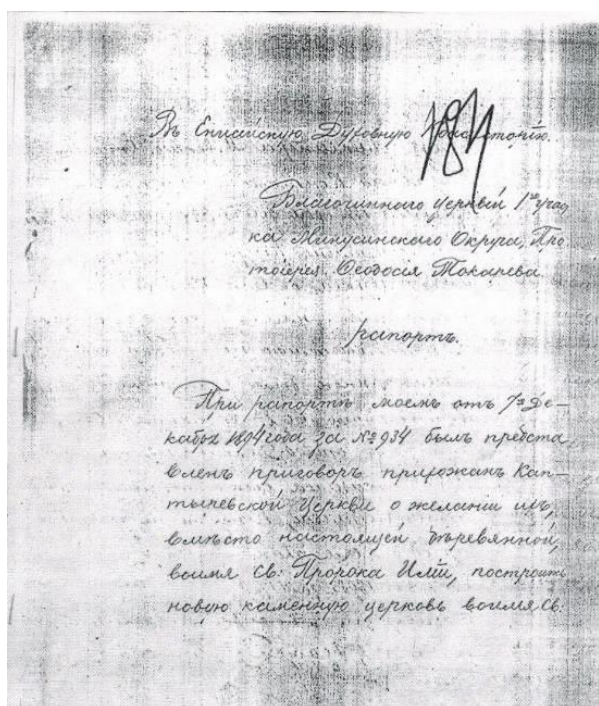 Въ Енисейскую Духовную Консисторію.
184
Благочиннаго церквей 1го учас
ка Минусинскаго Округа, Про
тоіерея Ѳеодосія Токарева
рапортъ.
При рапортѣ моемъ отъ 7го Де-
кабря 1894 года за № 934 былъ предста
вленъ приговоръ прихожанъ Кап-
тыревской Церкви о желаніи ихъ,
вмѣсто настоящей деревянной,
воимя Св. Пророка Иліи, построить
новую каменную церковь воимя Св.